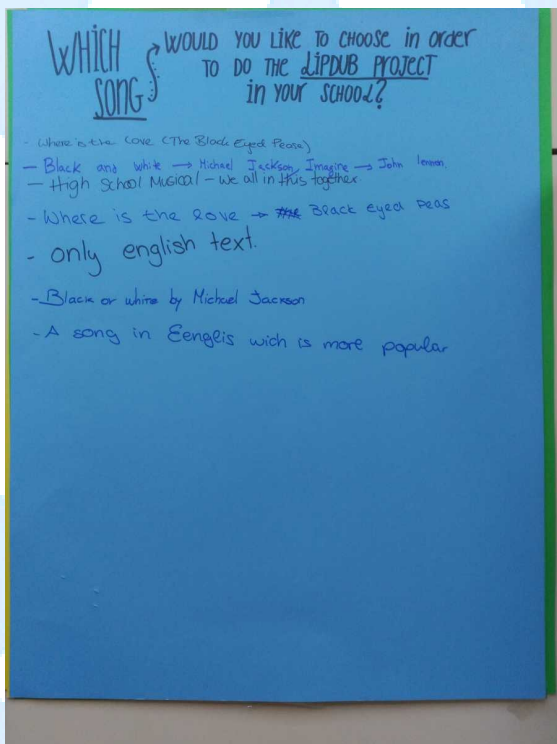 WHICH SONG WOULD YOU LIKE TO CHOOSE in ORDER
TO DO THE LiPDUB PROJECT
in YOUR SCHOOL?
- Where is the Love (The Black Eyed Peas)
- Black and White → Michael Jackson, Imagine → John lennon.
- High School Musical - We all in this together
- Where is the love → Black eyed peas
- only english text.
- Black or white by Michael Jackson
- A song in Eenglis wich is more popular